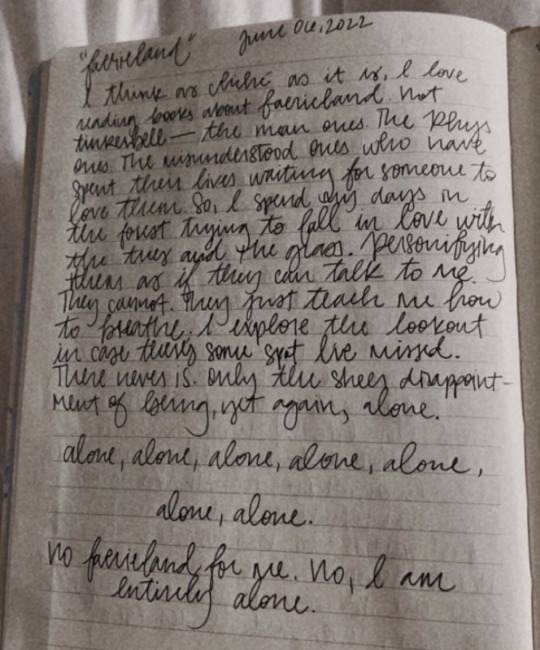 "faerieland" June 06, 2022
I think as cliché as it is, I love
reading books about faerieland. Not
tinkerbell — the man ones. The Rhys
ones. The misunderstood ones who have
spent their lives waiting for someone to
love them. So, I spend my days in
the forest trying to fall in love with
the trees and the grass. Personifying
them as if they can talk to me.
They cannot. They just teach me how
to breathe. I explore the lookout
in case there's some spot I've missed.
There never is. Only the sheer disappoint-
ment of being, yet again, alone.
alone, alone, alone, alone, alone,
alone, alone.
No faerieland for me. No, I am
entirely alone.